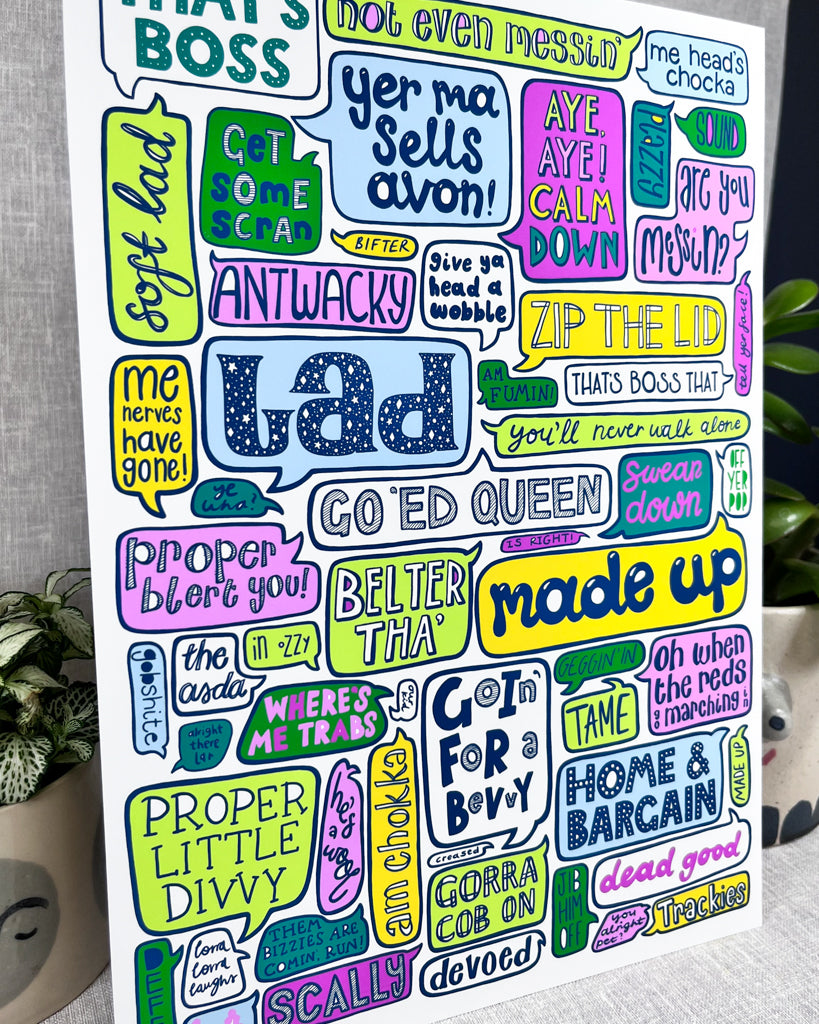 THAT'S
BOSS
not even messin'
me head's
chocka
soft lad
GeT
some
scran
yer ma
sells
avon!
AYE,
AYE!
CALM
DOWN
Dazzy
SOUND
are you
messin?
BIFTER
ANTWACKY
give ya
head a
wobble
ZIP THE LID
tell yer face!
me
nerves
have
gone!
Lad
AM
FUMIN!
THAT'S BOSS THAT
you'll never walk alone
ye
wha?
GO 'ED QUEEN
swear
down
OFF
YER
POD
IS RIGHT!
proper
blert you!
BELTER
THA'
made up
gobshite
the
asda
in ozzy
GEGGIN' IN
oh when
the reds
g marching in
alright
there
la
WHERE'S
ME TRABS
our
kid
GoIn'
FoR a
BevvY
TAME
HOME &
BARGAIN
MADE UP
PROPER
LITTLE
DIVVY
he's
a wool
am chokka
creased
GORRA
COB ON
JIB
HIM
OFF
dead good
you
alright
pet?
Trackies
lorra
lorra
laughs
THEM
BIZZIES ARE
COMIN, RUN!
SCALLY
devoed